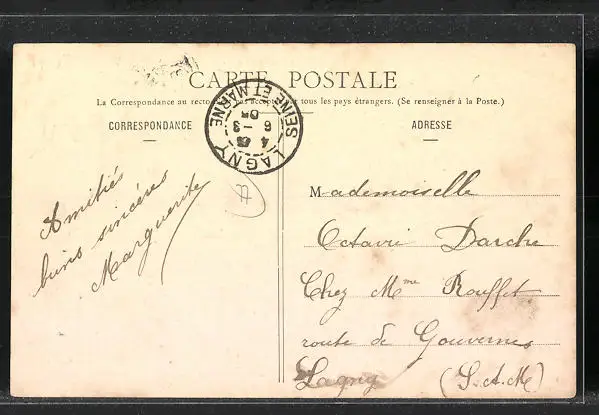 CARTE POSTALE
La Correspondance au recto n'est pas acceptée par tous les pays étrangers. (Se renseigner à la Poste.)
CORRESPONDANCE
ADRESSE
LAGNY
SEINE ET MARNE
6 - 3
05
Amitiés
biens sincères
Marguerite
Mademoiselle
Octavie Darche
Chez Mme Rouffet
route de Gouvernes
Lagny (S.-et-M)